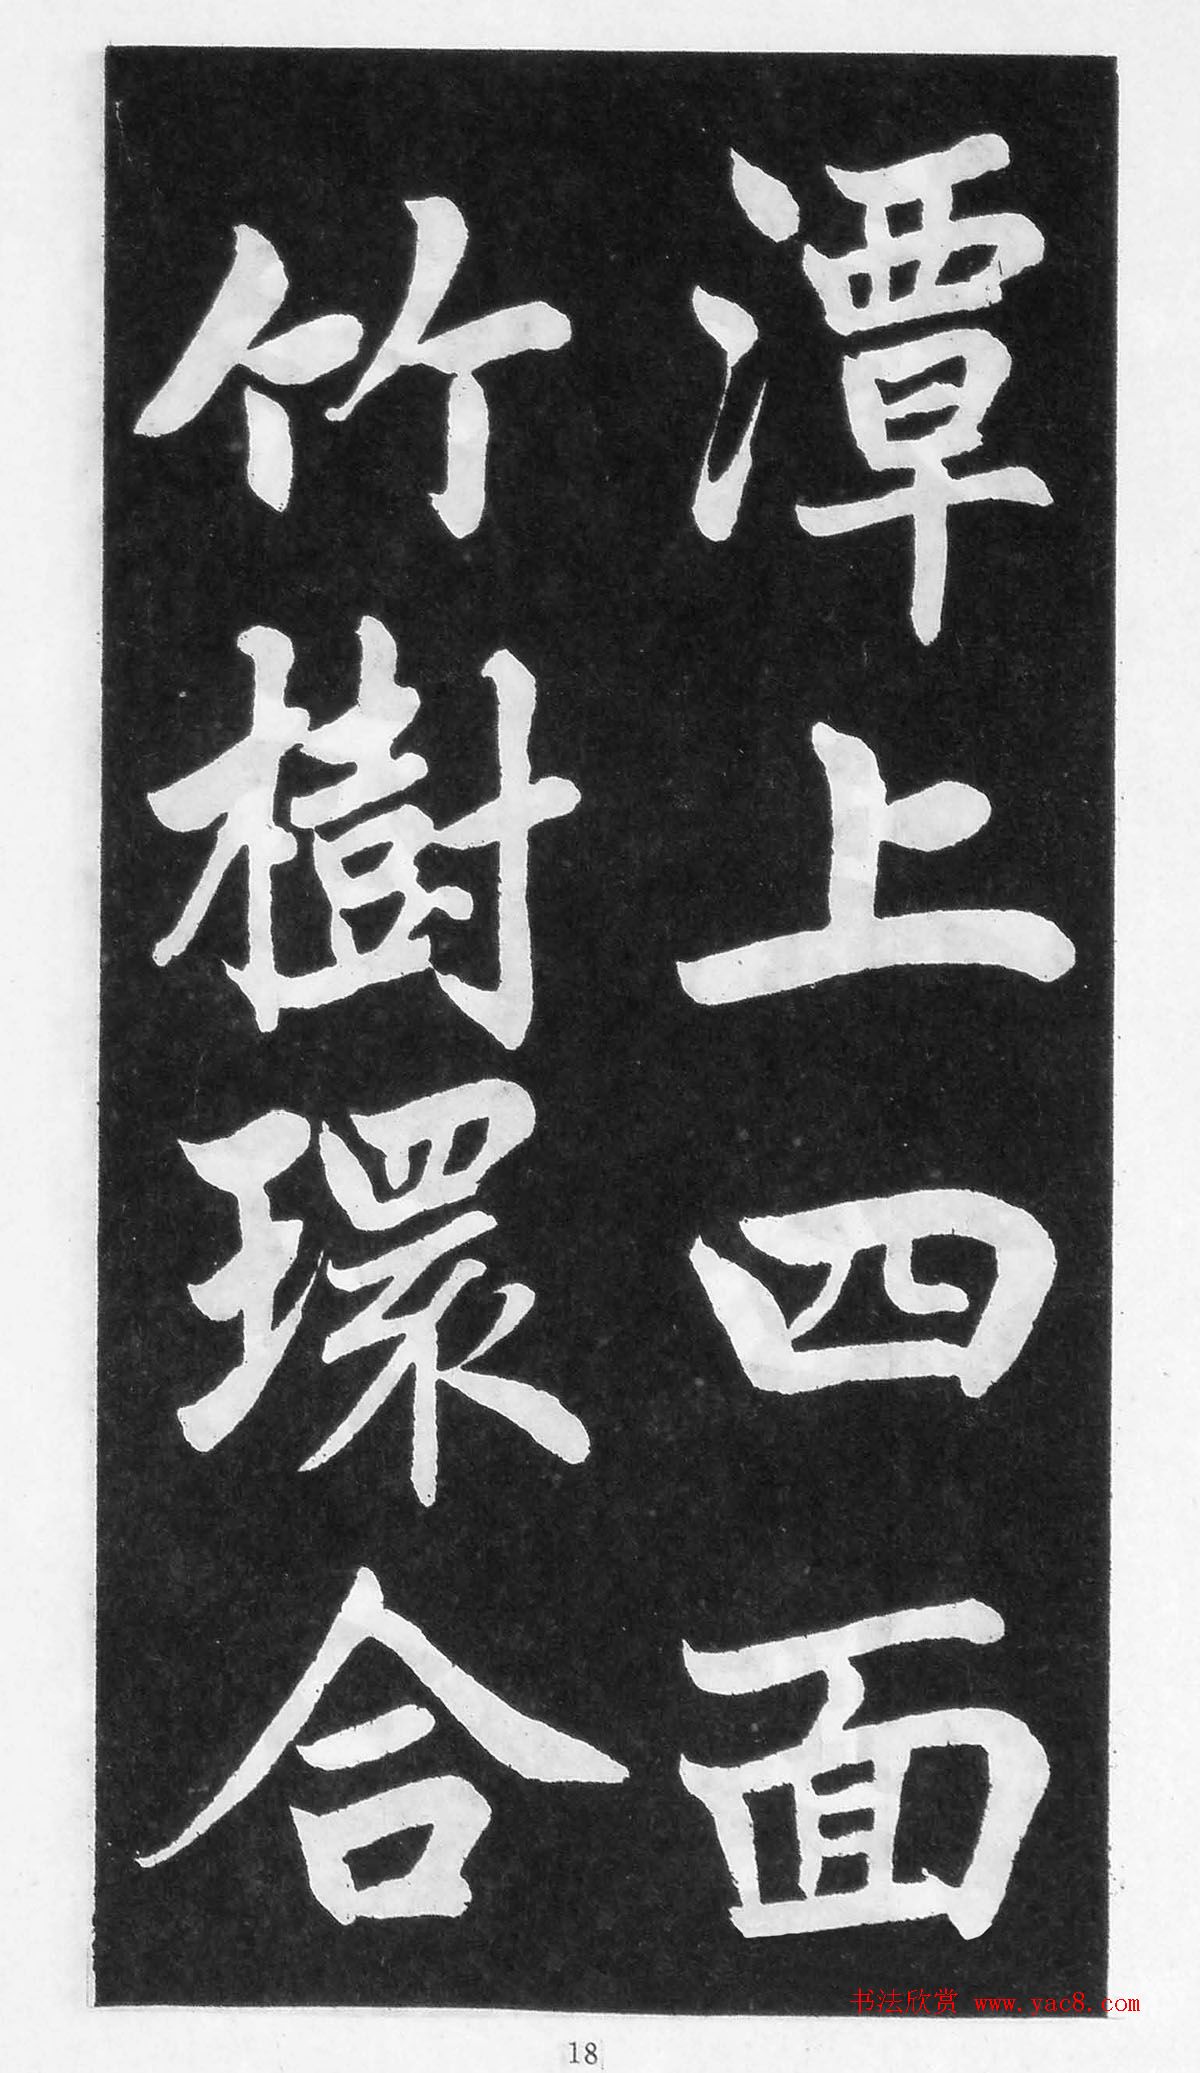 潭上四面
竹樹環合
书法欣赏 www.yac8.com
18